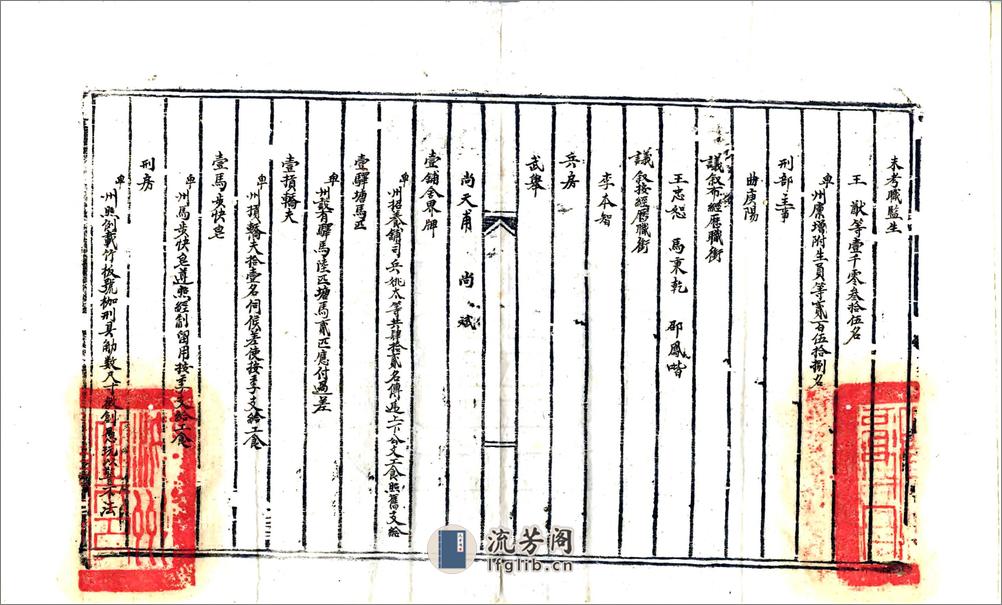 未考職監生
王猷等壹千零叄拾伍名
卑州廩增附生員等貳百伍拾捌名
刑部主事
曲庚陽
議叙布經歷職銜
王忠恕 馬秉乾 邵鳳喈
議叙按經歷職銜
李本智
兵房
武舉
尚天甫 尚斌
壹舖舍界牌
卑州招募舖司兵姚太等共肆拾貳名傳遞上下公文工食照舊支給
壹驛塘馬匹
卑州設有驛馬陸匹塘馬貳匹應付過差
壹損轎夫
卑州損轎夫拾壹名伺候差使按季支給工食
壹馬步快皂
卑州馬步快皂遵照經制留用按季支給工食
刑房
卑州照例載竹板號枷刑具觔數尺寸 創懲玩 不法
流芳阁
lfglib.cn